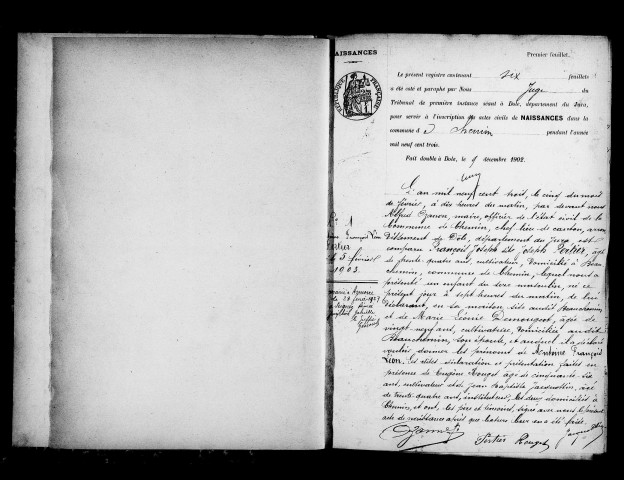 NAISSANCES
Premier feuillet.
Le présent registre contenant six feuillets
a été coté et paraphé par Nous Juge du
Tribunal de première instance séant à Dole, département du Jura,
pour servir à l'inscription des actes civils de NAISSANCES dans la
commune de Chemin pendant l'année
mil neuf cent trois.
Fait double à Dole, le 9 décembre 1902.
L'an mil neuf cent trois, le cinq du mois
de février, à dix heures du matin, par devant nous
Alfred maire, officier de l'état civil de la
Commune de Chemin, chef lieu de canton, arron
dissement de Dôle, département du Jura, est
comparu François Joseph dit Joseph Pertier, âgé
de trente quatre ans, cultivateur, domicilié à Beau
chemin, commune de Chemin, lequel nous a
présenté un enfant du sexe masculin, né ce
présent jour à sept heures du matin, de lui
déclarant, en sa maison sis audit Beauchemin,
et de Marie Léonie Demougeot, âgée de
vingt neuf ans, cultivatrice, domiciliée audit
Beauchemin, son épouse, et auquel il a déclaré
vouloir donner les prénoms de Antoine François
Léon. Les dites déclaration et présentation faites en
présence de Eugène Rouget âgé de cinquante six
ans, cultivateur et de Jean Baptiste Jacquottin, âgé
de trente quatre ans, instituteur, les deux domiciliés à
Chemin, et ont, les père et témoins, signé avec nous le présent
acte de naissance après que lecture leur en a été faite.
Pertier Rouget
N° 1
François Léon
Pertier
5 février
1903.